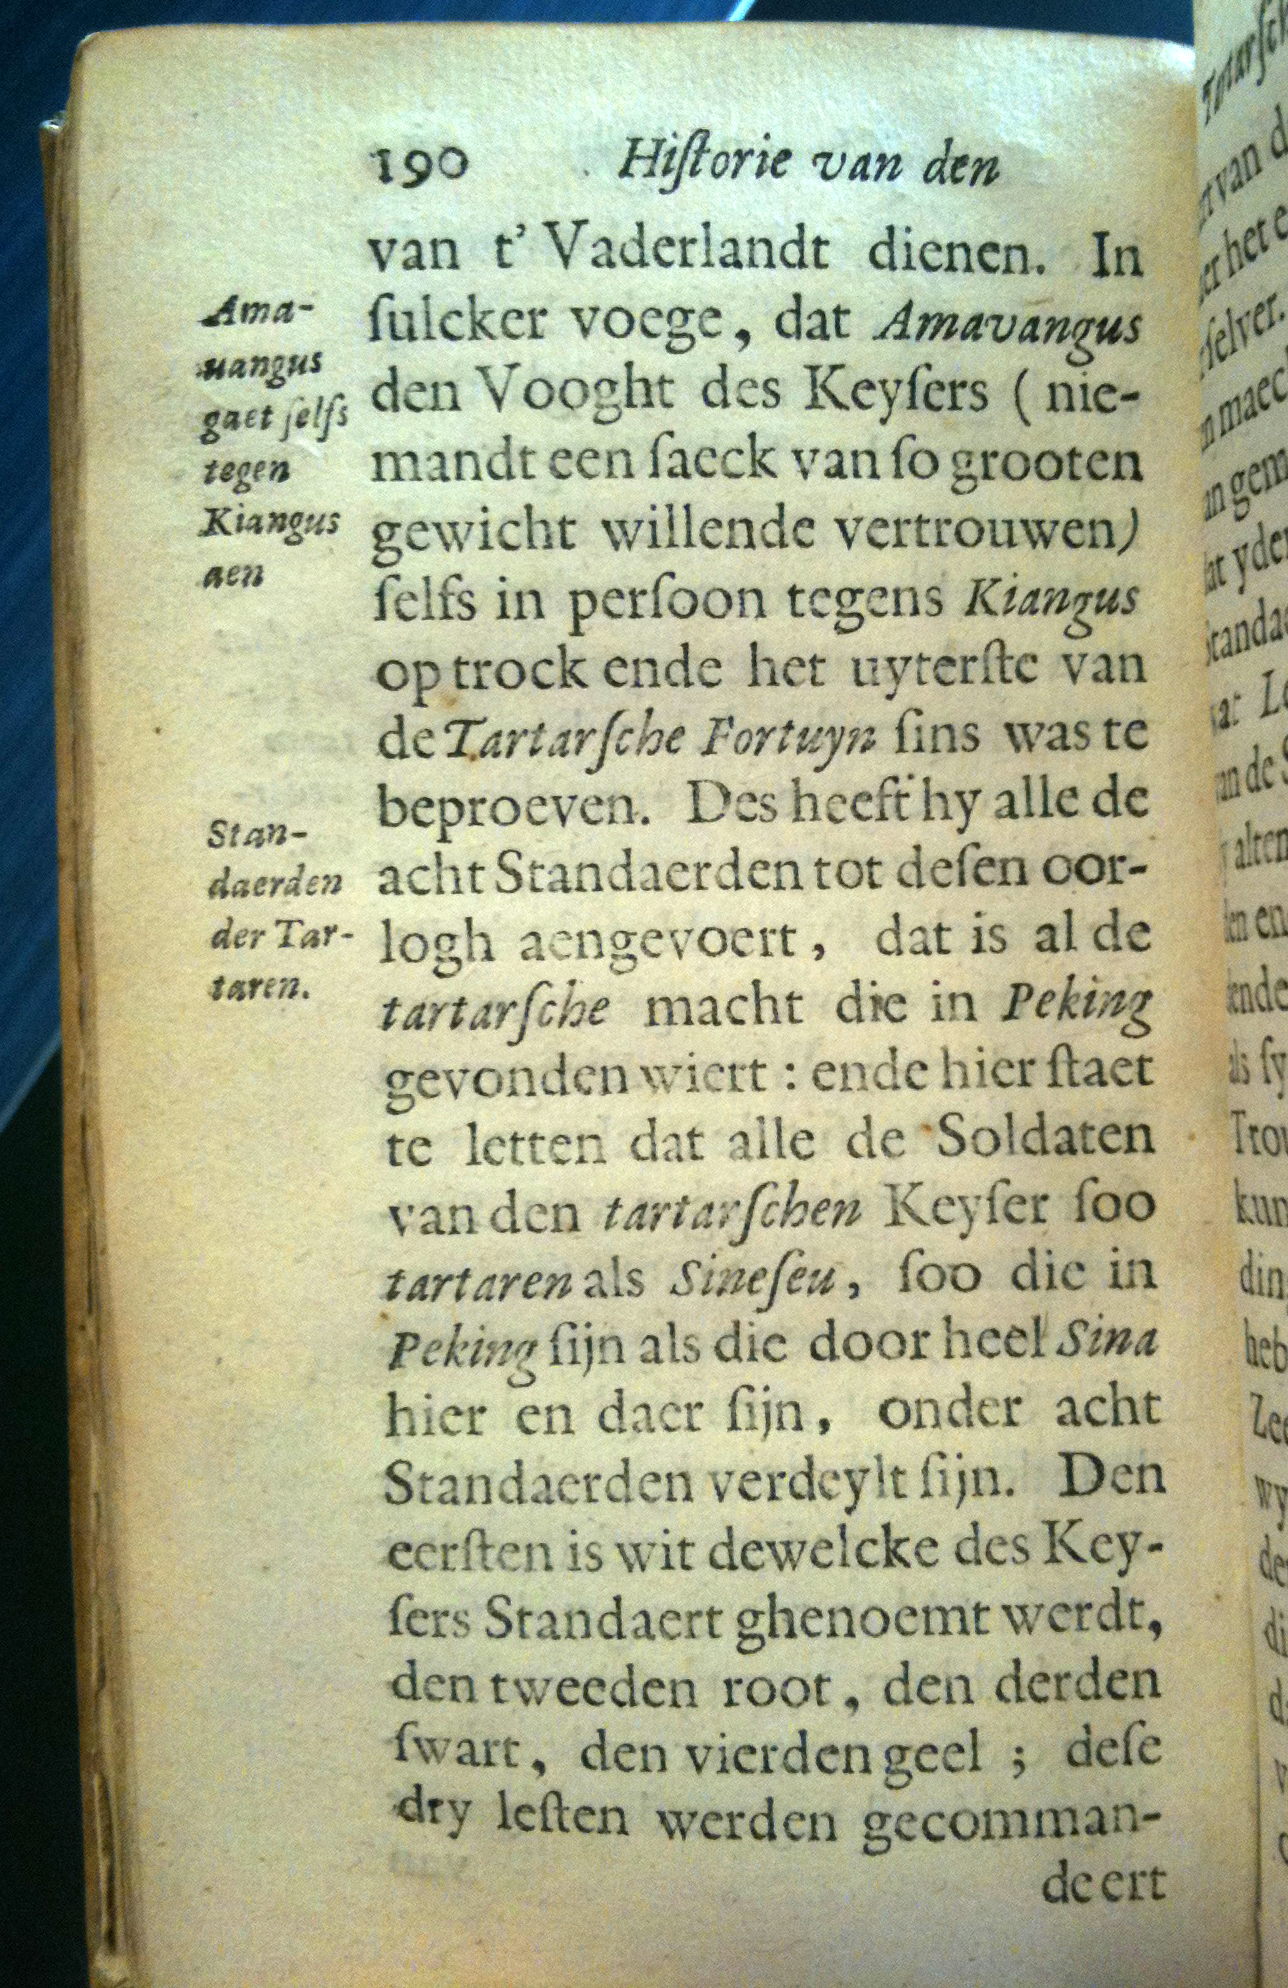 190 Hiſtorie van den
van t' Vaderlandt dienen. In
ſulcker voege, dat Amavangus
den Vooght des Keyſers ( nie-
mandt een ſaeck van ſo grooten
gewicht willende vertrouwen)
ſelfs in perſoon tegens Kiangus
op trock ende het uyterſte van
de Tartarſche Fortuyn ſins was te
beproeven. Des heeft hy alle de
acht Standaerden tot deſen oor-
logh aengevoert, dat is al de
tartarſche macht die in Peking
gevonden wiert : ende hier ſtaet
te letten dat alle de Soldaten
van den tartarſchen Keyſer ſoo
tartaren als Sineſeu, ſoo die in
Peking ſijn als die door heel Sina
hier en daer ſijn, onder acht
Standaerden verdeylt ſijn. Den
eerſten is wit dewelcke des Key-
ſers Standaert ghenoemt werdt,
den tweeden root, den derden
ſwart, den vierden geel ; deſe
dry leſten werden gecomman-
deert
Ama-
uangus
gaet ſelfs
tegen
Kiangus
aen
Stan-
daerden
der Tar-
taren.